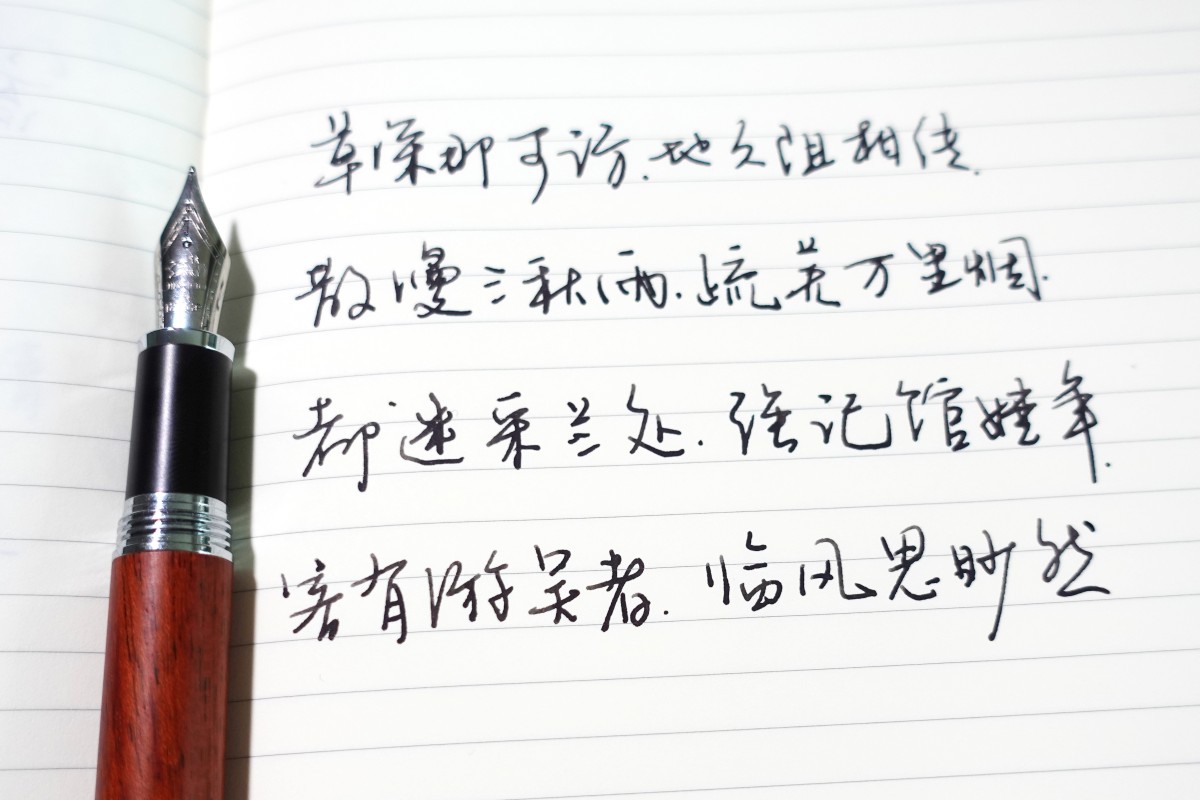 草深那可访.地久阻相传.
散漫三秋雨.疏芜万里烟.
都迷采兰处.强记馆娃年.
客有游吴者.临风思眇然